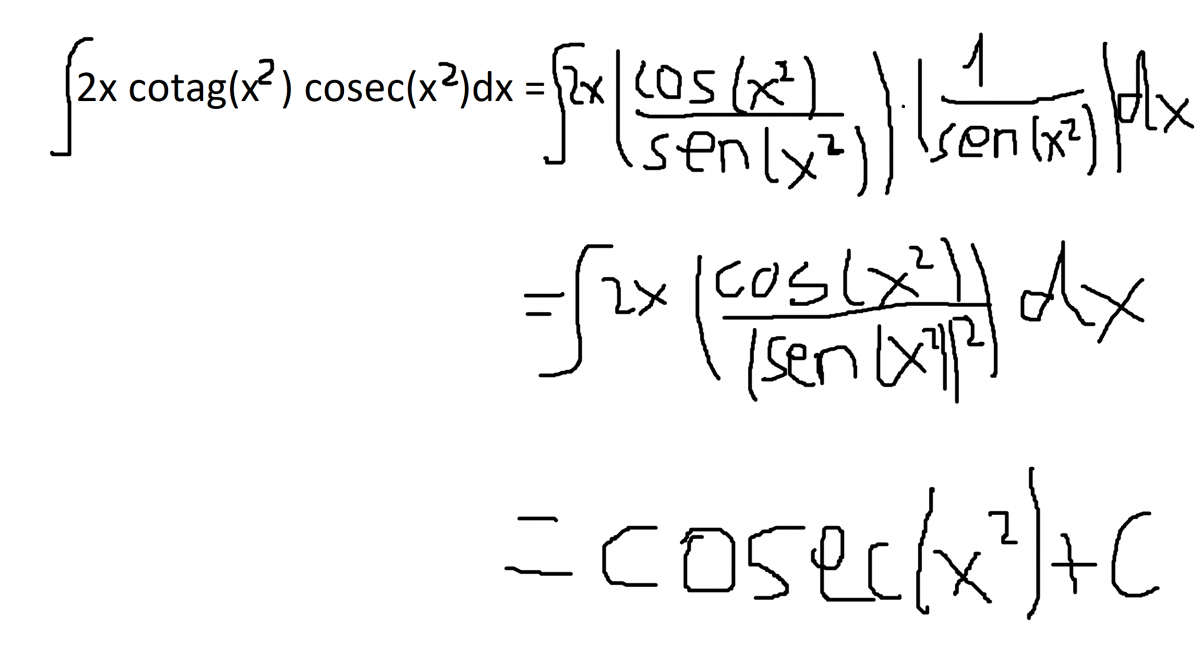 ∫2x cotag(x²) cosec(x²)dx = ∫2x (cos(x²)/sen(x²)) · (1/sen(x²)) dx
= ∫2x (cos(x²)/(sen(x²))²) dx
= cosec(x²)+C